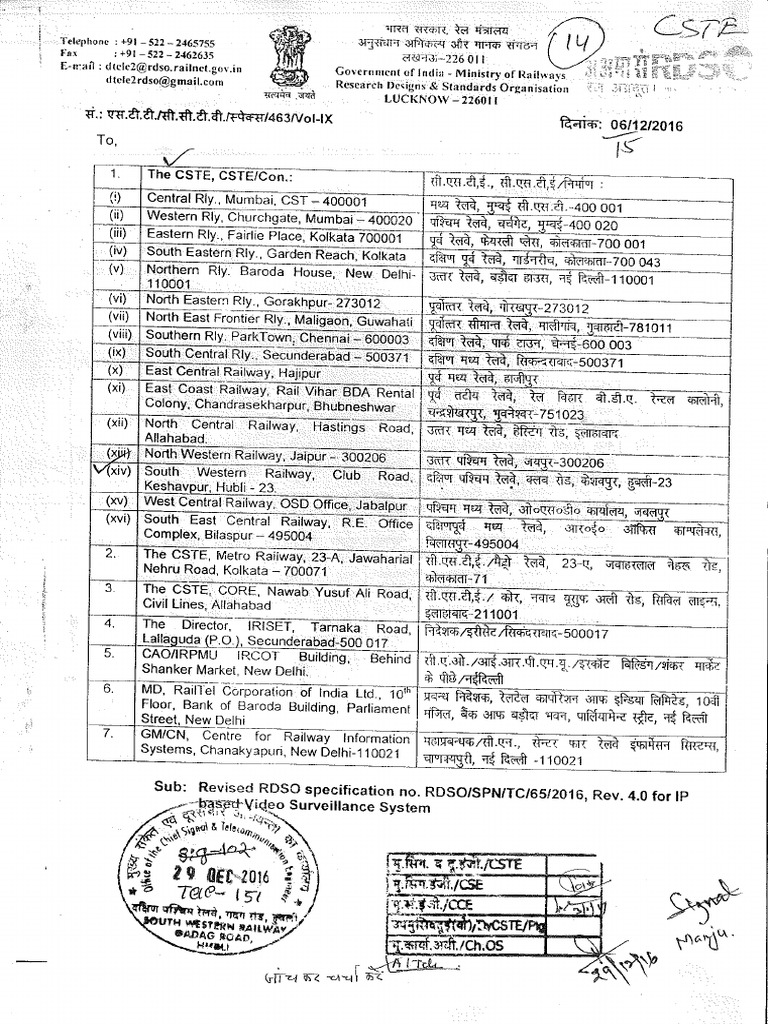 भारत सरकार, रेल मंत्रालय
अनुसंधान अभिकल्प और मानक संगठन
लखनऊ-226 011
Government of India - Ministry of Railways
Research Designs & Standards Organisation
LUCKNOW – 226011
Telephone : +91 – 522 – 2465755
Fax : +91 – 522 – 2462635
E-mail : dtele2@rdso.railnet.gov.in
dtele2rdso@gmail.com
सत्यमेव जयते
14
CSTE
RDSO
सं.: एस.टी.टी./सी.सी.टी.वी./स्पेक्स/463/Vol-IX
दिनांक: 06/12/2016
15
To,
1. The CSTE, CSTE/Con.: सी.एस.टी,ई., सी.एस.टी,ई/निर्माण :
(i) Central Rly., Mumbai, CST – 400001 मध्य रेलवे, मुम्बई सी.एस.टी.-400 001
(ii) Western Rly, Churchgate, Mumbai – 400020 पश्चिम रेलवे, चर्चगेट, मुम्बई-400 020
(iii) Eastern Rly., Fairlie Place, Kolkata 700001 पूर्व रेलवे, फेयरली प्लेस, कोलकाता-700 001
(iv) South Eastern Rly., Garden Reach, Kolkata दक्षिण पूर्व रेलवे, गार्डनरीच, कोलकाता-700 043
(v) Northern Rly. Baroda House, New Delhi- उत्तर रेलवे, बड़ौदा हाउस, नई दिल्ली-110001
110001
(vi) North Eastern Rly., Gorakhpur- 273012 पूर्वोत्तर रेलवे, गोरखपुर-273012
(vii) North East Frontier Rly., Maligaon, Guwahati पूर्वोत्तर सीमान्त रेलवे, मालीगांव, गुवाहाटी-781011
(viii) Southern Rly. ParkTown, Chennai – 600003 दक्षिण रेलवे, पार्क टाउन, चेन्नई-600 003
(ix) South Central Rly., Secunderabad – 500371 दक्षिण मध्य रेलवे, सिकन्दराबाद-500371
(x) East Central Railway, Hajipur पूर्व मध्य रेलवे, हाजीपुर
(xi) East Coast Railway, Rail Vihar BDA Rental पूर्व तटीय रेलवे, रेल विहार बी.डी.ए. रेन्टल कालोनी,
Colony, Chandrasekharpur, Bhubneshwar चन्द्रशेखरपुर, भुवनेश्वर-751023
(xii) North Central Railway, Hastings Road, उत्तर मध्य रेलवे, हेस्टिंग रोड, इलाहाबाद
Allahabad.
(xiii) North Western Railway, Jaipur – 300206 उत्तर पश्चिम रेलवे, जयपुर-300206
(xiv) South Western Railway, Club Road, दक्षिण पश्चिम रेलवे, क्लब रोड, केशवपुर, हुबली-23
Keshavpur, Hubli - 23.
(xv) West Central Railway, OSD Office, Jabalpur पश्चिम मध्य रेलवे, ओ०एस०डी० कार्यालय, जबलपुर
(xvi) South East Central Railway, R.E. Office दक्षिणपूर्व मध्य रेलवे, आर०ई० ऑफिस काम्पलेक्स,
Complex, Bilaspur – 495004 बिलासपुर-495004
2. The CSTE, Metro Railway, 23-A, Jawaharlal सी.एस.टी,ई./मैट्रो रेलवे, 23-ए, जवाहरलाल नेहरू रोड,
Nehru Road, Kolkata – 700071 कोलकाता-71
3. The CSTE, CORE, Nawab Yusuf Ali Road, सी.एस.टी,ई./ कोर, नवाब यूसुफ अली रोड, सिविल लाइन्स,
Civil Lines, Allahabad इलाहाबाद-211001
4. The Director, IRISET, Tarnaka Road, निदेशक/इरीसेट/सिकंदराबाद-500017
Lallaguda (P.O.), Secunderabad-500 017
5. CAO/IRPMU IRCOT Building, Behind सी.ए.ओ./आई.आर.पी.एम.यू./इरकॉट बिल्डिंग/शंकर मार्केट
Shanker Market, New Delhi. के पीछे/नईदिल्ली
6. MD, RailTel Corporation of India Ltd., 10th प्रबन्ध निदेशक, रेलटेल कार्पोरेशन आफ इन्डिया लिमिटेड, 10वीं
Floor, Bank of Baroda Building, Parliament मंजिल, बैंक आफ बड़ौदा भवन, पार्लियामेन्ट स्ट्रीट, नई दिल्ली
Street, New Delhi
7. GM/CN, Centre for Railway Information महाप्रबन्धक/सी.एन., सेन्टर फार रेलवे इंफार्मेसन सिस्टम्स,
Systems, Chanakyapuri, New Delhi-110021 चाणक्यपुरी, नई दिल्ली -110021
Sub: Revised RDSO specification no. RDSO/SPN/TC/65/2016, Rev. 4.0 for IP
based Video Surveillance System
Office of the Chief Signal & Telecommunication Engineer
Sig-102
29 DEC 2016
Tele-151
दक्षिण पश्चिम रेलवे, गदग रोड, हुबली
SOUTH WESTERN RAILWAY
GADAG ROAD,
HUBLI
मु.सिग. व दू.इंजी./CSTE
मु.सिग.इंजी./CSE
मु.सं.इंजी./CCE
मु.कार्या.अधी./Ch.OS
29/12/16
Signal
Manju.
जांच कर चर्चा करें